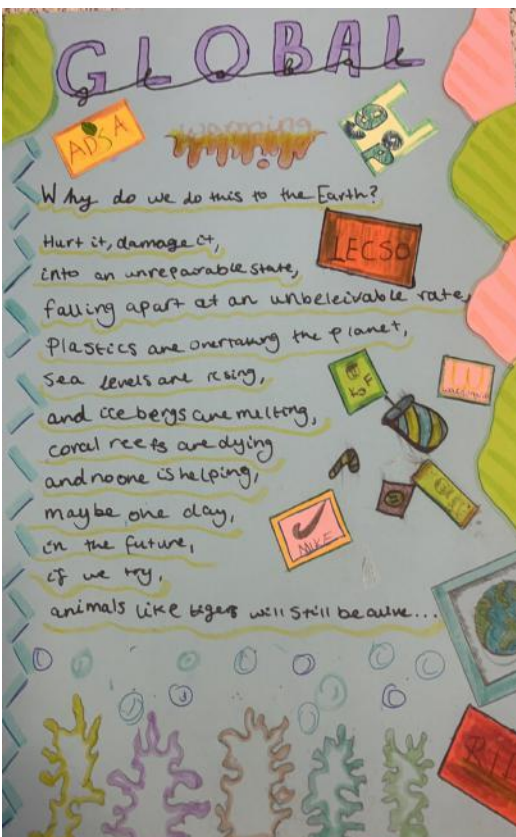 GLOBAL
global
warming
ADSA
Why do we do this to the Earth?
Hurt it, damage it,
LECSO
into an unrepairable state,
falling apart at an unbeleivable rate,
Plastics are overtaking the planet,
sea levels are rising,
and ice bergs are melting,
coral reefs are dying
and no one is helping,
maybe one day,
MIKE
in the future,
if we try,
animals like tigers will still be alive...